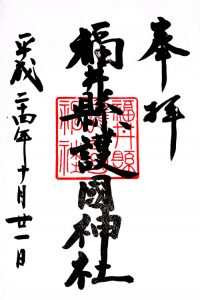 奉拝
福井縣護國神社
福井縣護國神社
平成二十四年十月廿一日